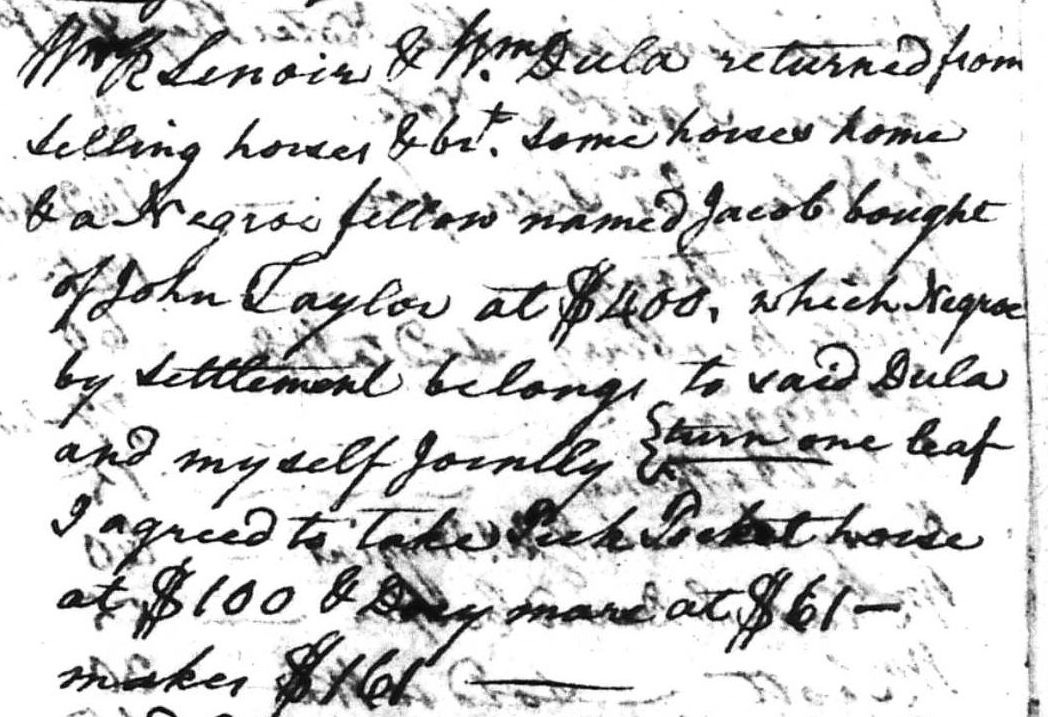 Wm R Lenoir & Wm. Dula returned from
selling horses & brt. some horses home
& a Negroe fellow named Jacob bought
of John Taylor at $400. which Negroe
by settlement belongs to said Dula
and myself Joinlly { turn one leaf
I agreed to take Pick Pocket horse
at $100 & mare at $61 —
makes $161 ——